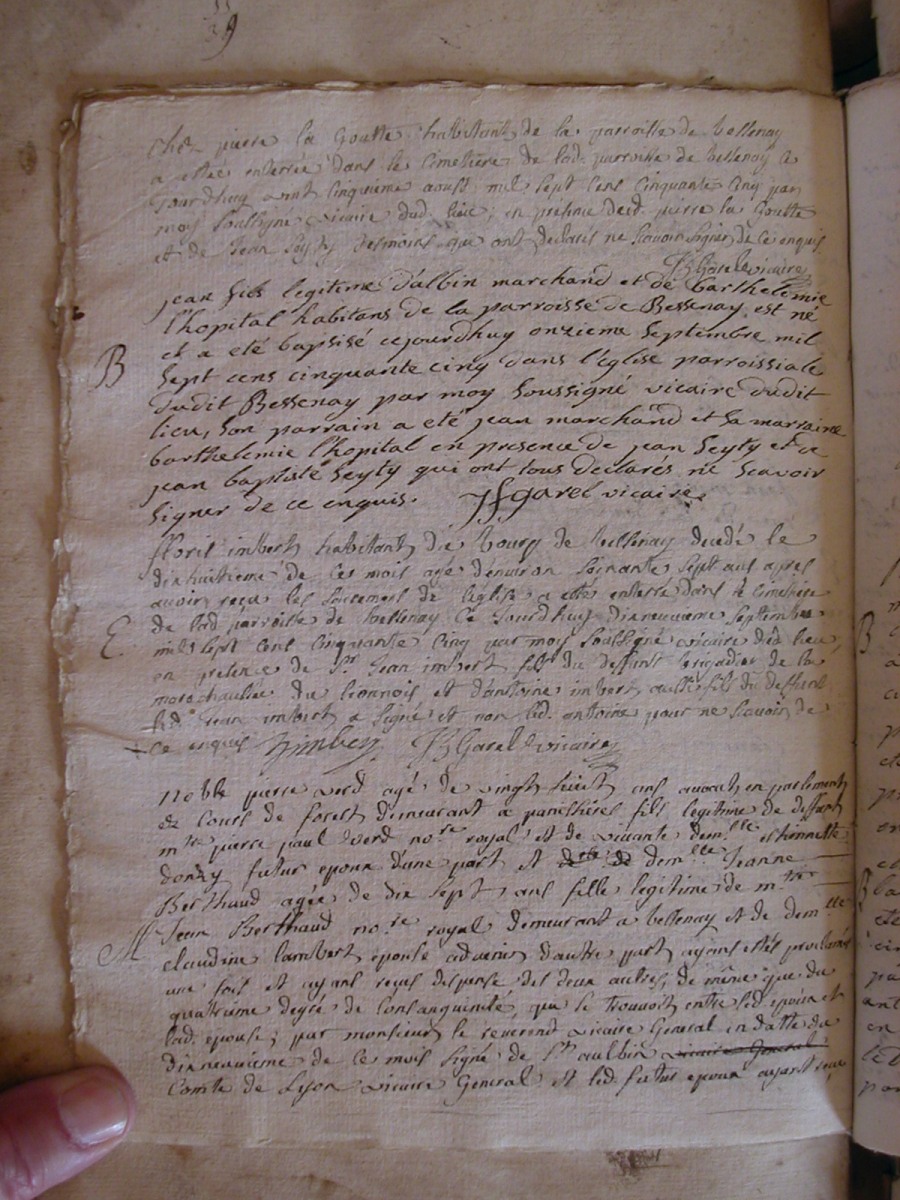 9
chez pierre la Goutte habitant de la parroisse de bessenay
a estée enterrée dans le Cimetière de lad. parroisse de bessenay Ce
jourdhuy vint cinquieme aoust mil sept cens cinquante cinq par
moy soussigné vicaire dud. lieu, en présence dud. pierre la Goutte
et de Jean Seyty qui ont declarés ne scavoir signer de ce enquis
JfGarel vicaire
jean fils legitime d'albin marchand et de barthelemie
l'hopital habitans de la parroisse de Bessenay est né
et a eté baptisé cejourdhuy onzieme septembre mil
B
sept cens cinquante cinq dans l'église parroissiale
dudit Bessenay par moy soussigné vicaire dudit
lieu, son parrain a eté jean marchand et sa marraine
barthelemie l'hopital en presence de jean Seyty et de
jean baptiste Seyty qui ont tous declarés ne scavoir
signer de ce enquis. JfGarel vicaire
imbert habitant du bourg de bessenay decedé le
dixhuitieme de ces mois agé d'environ soixante sept ans apres
avoir reçu les sacremens de l'église a esté enterré dans le cimetière
de lad. parroisse de bessenay Ce Jourdhuy dixneuvieme septembre
E
mil sept cent cinquante cinq par moy soussigné vicaire dud. lieu,
en présence de Sr. Jean imbert fils du deffunt brigadier de la
marechaussée du lionnois et d'antoine imbert aussi fils du deffunt
led. Sr. Jean imbert a signé et non led. antoine pour ne scavoir de
ce enquis Jimbert JfGarel vicaire
noble pierre verd agé de vingt huit ans avocat en parlement
et Cours de forest demeurant a panissières fils legitime de deffunt
mtre pierre paul Verd nore royal et de vivante demlle etiennette
donzy futur epoux d'une part et demlle Jeanne
Berthaud agée de dix sept ans fille legitime de mtre
M
Jean Berthaud nore royal demeurant a bessenay et de demlle
claudine lambert epouse advenir d'autre part ayant estés proclamés
une fois et ayant reçus dispense des deux autres, de même que du
quatrieme degré de Consanguinité qui se trouvoit entre led. epoux et
lad. epouse; par monsieur le reverend vicaire General en datte du
dixneuvieme de ce mois signé de St aulbin vicaire General
Comte de Lyon vicaire General et led. futur epoux ayant reçu
B